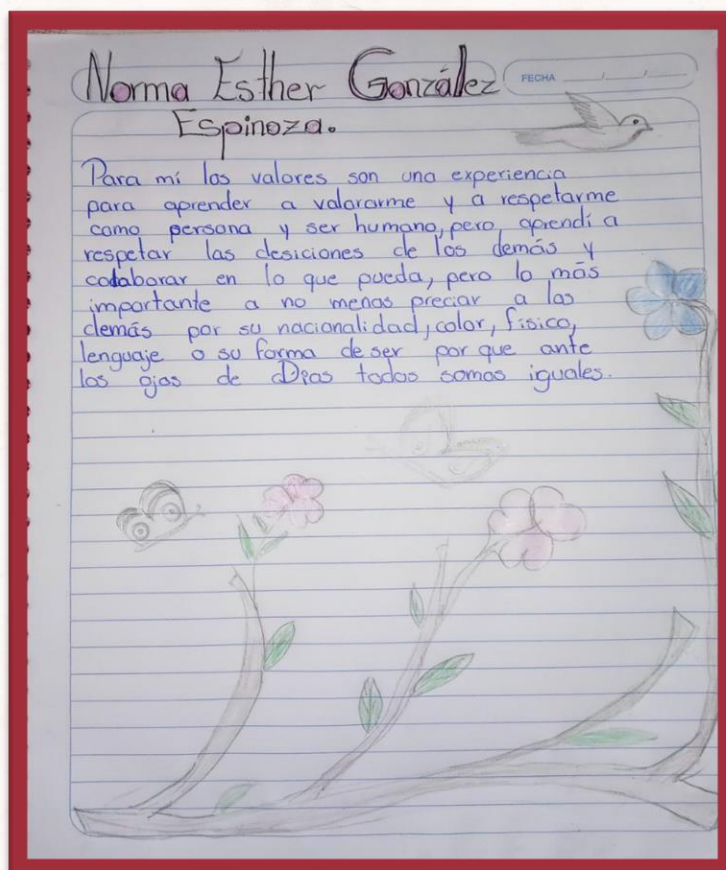 Norma Esther González
FECHA / /
Espinoza.
Para mí los valores son una experiencia
para aprender a valorarme y a respetarme
como persona y ser humano, pero, aprendí a
respetar las desiciones de los demás y
colaborar en lo que pueda, pero lo más
importante a no menos preciar a los
demás por su nacionalidad, color, físico,
lenguaje o su forma de ser por que ante
los ojos de Dios todos somos iguales.